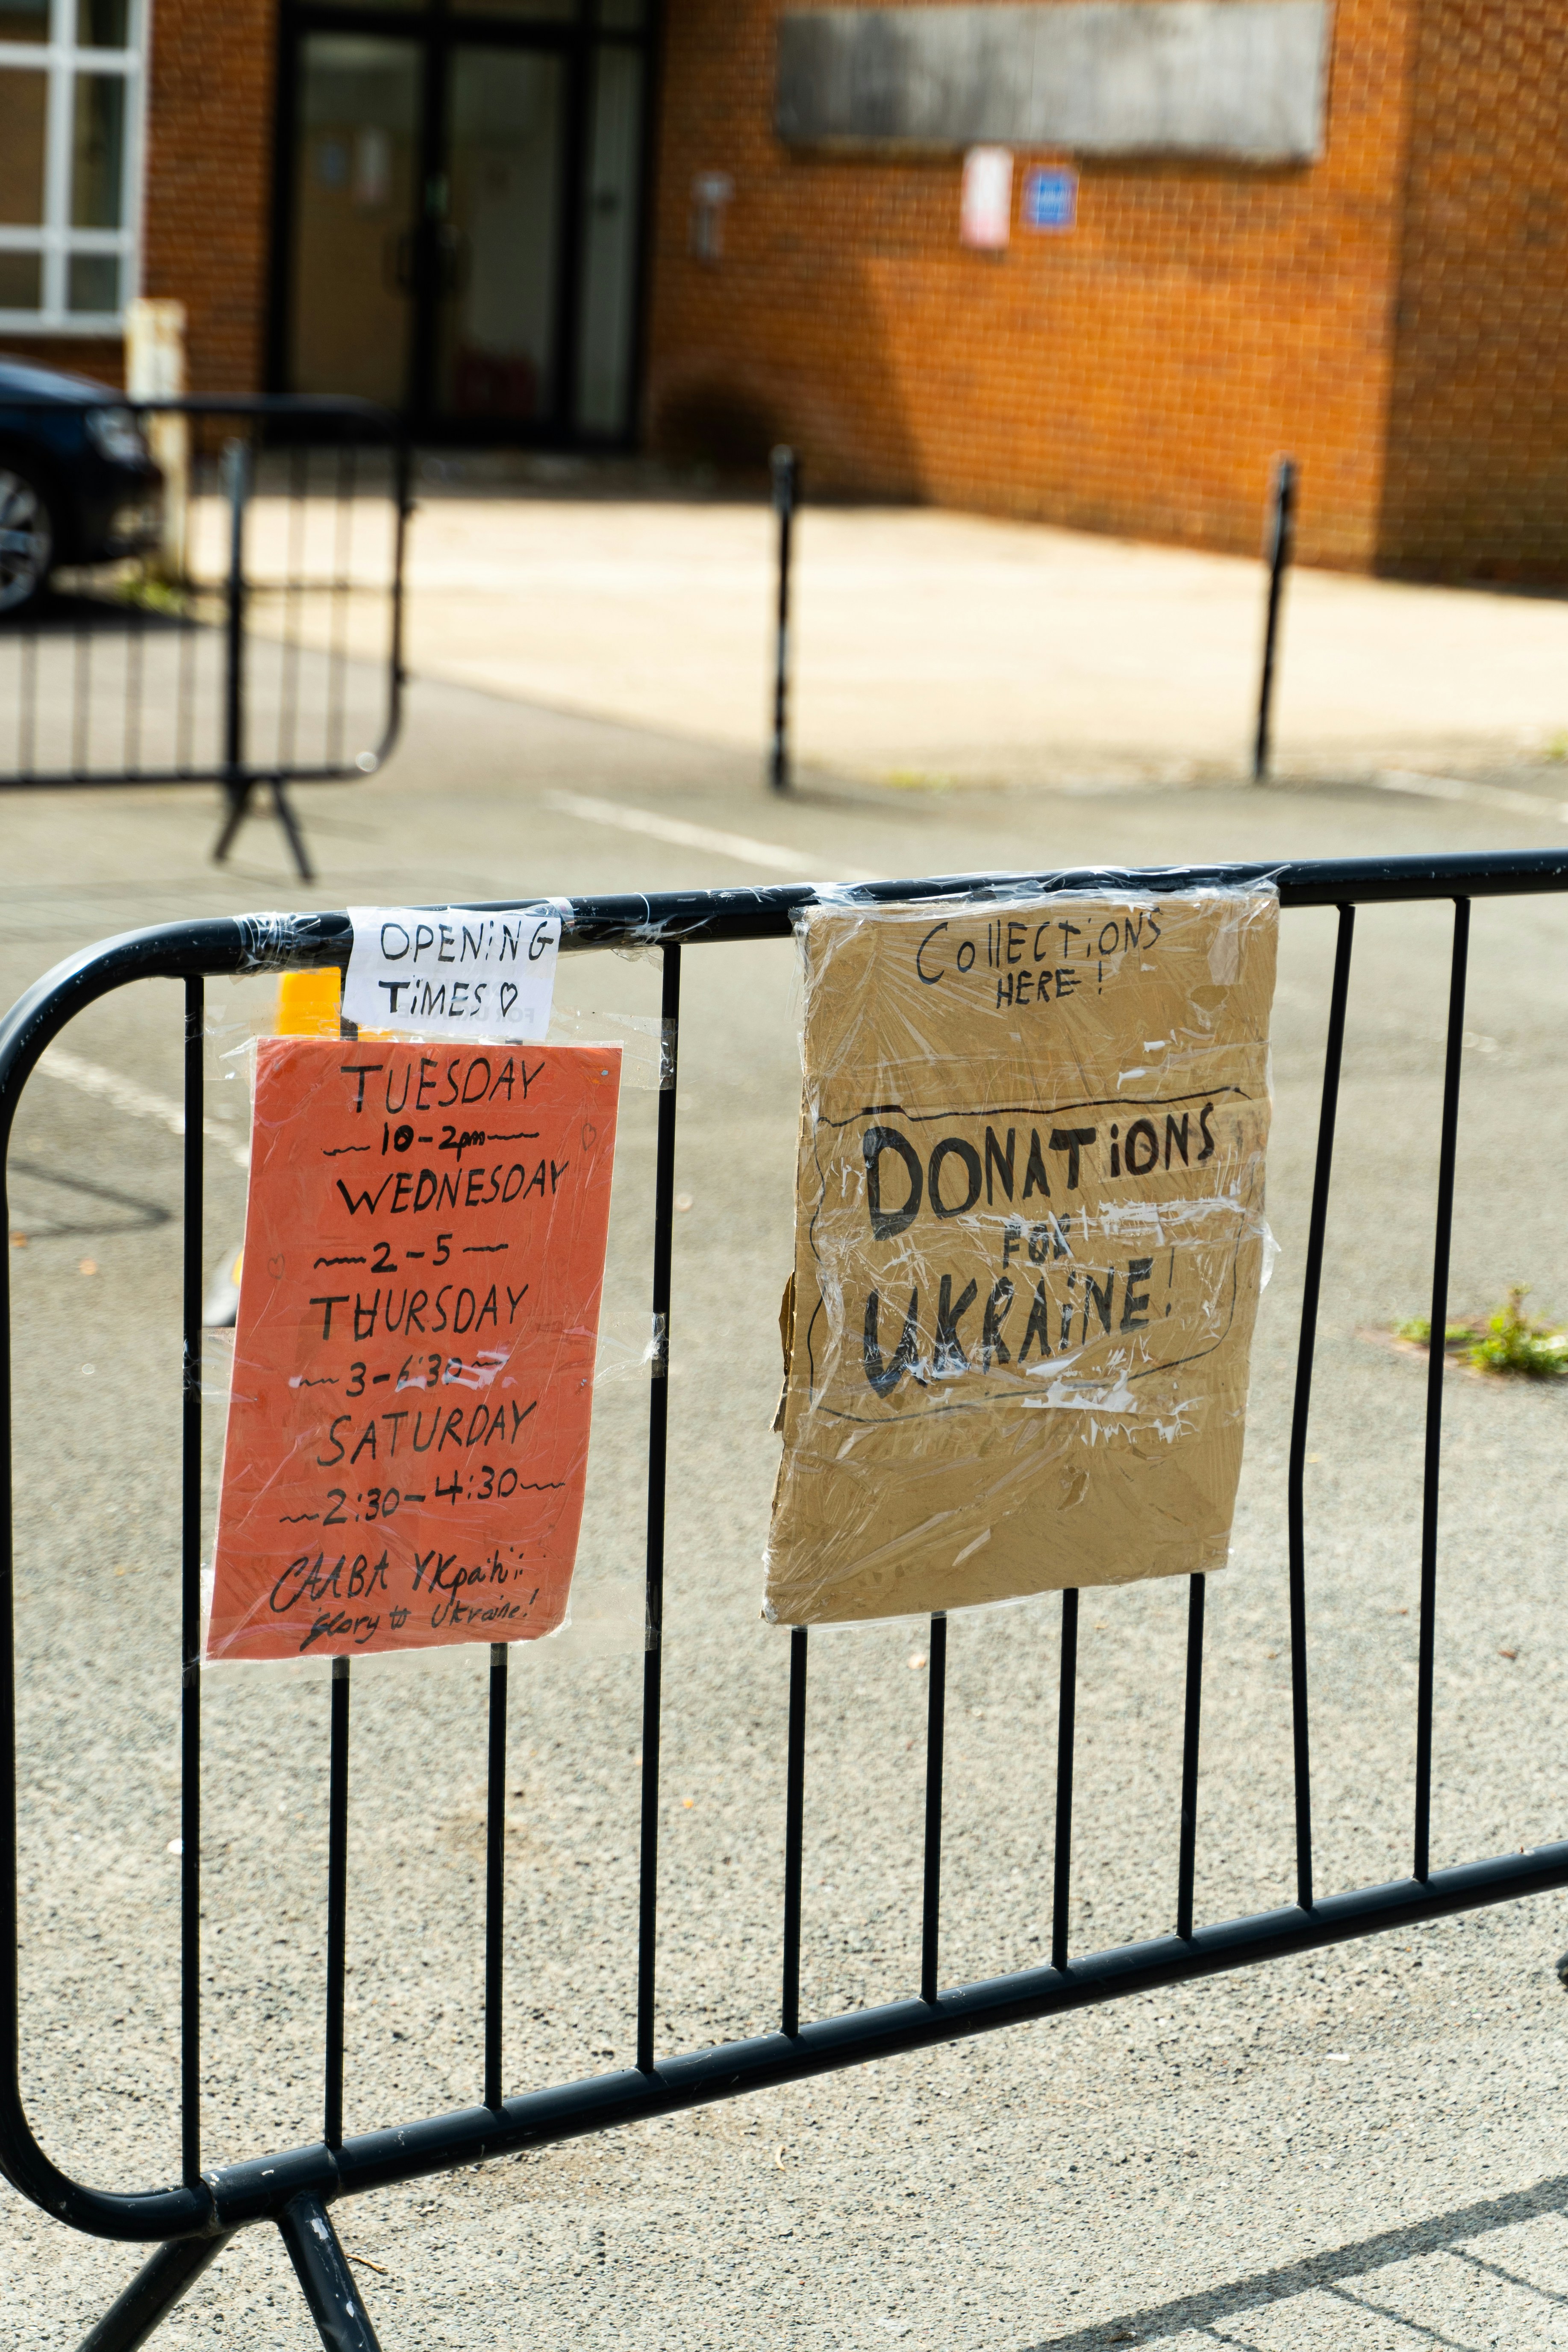 OPENiNG
TiMES ♡
TUESDAY
10-2pm
WEDNESDAY
2-5
THURSDAY
3-6:30
SATURDAY
2:30-4:30
СЛАВА УКраїнії
glory to Ukraine!
CollECTiONS
HERE!
DONATiONS
FOR
UKRAiNE!